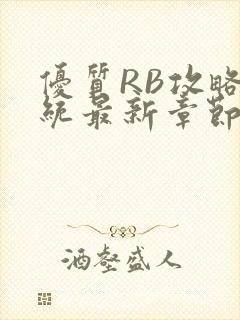 優質RB攻略
統最新章節
酒壑盛人